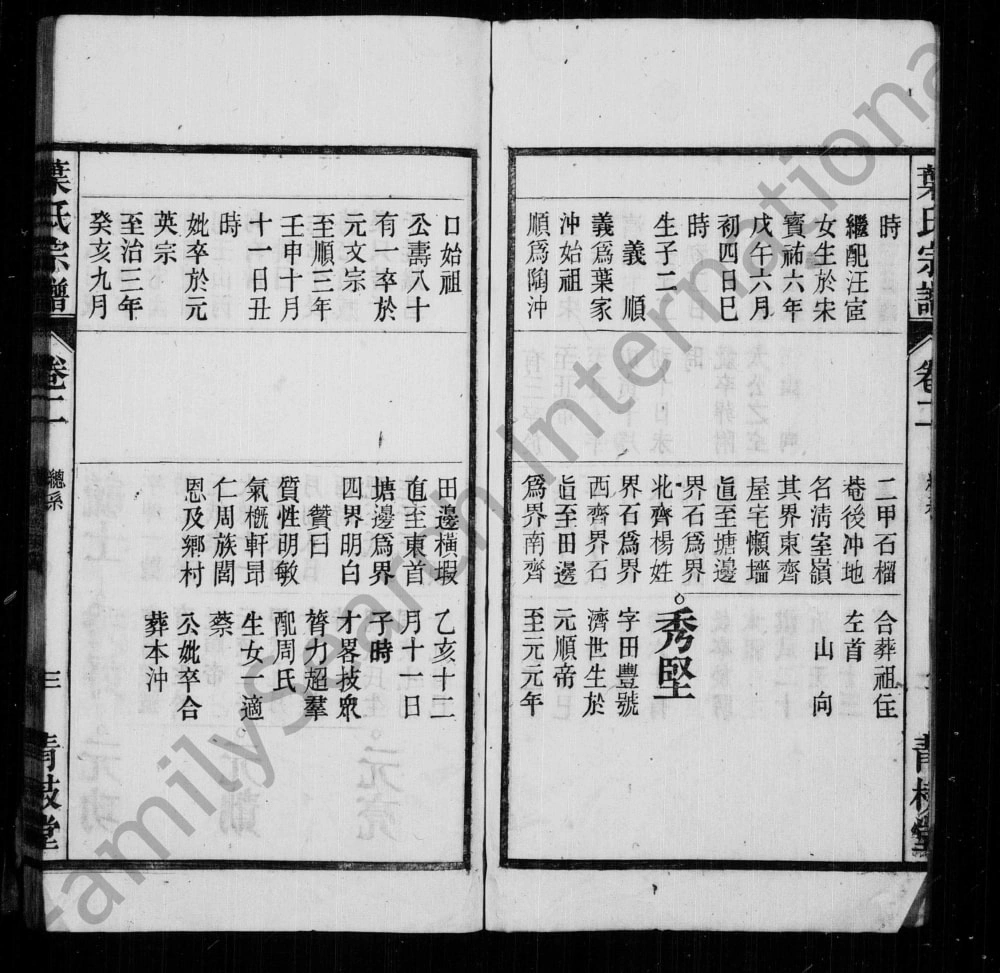 葉氏宗譜
卷二
總系
時
繼配汪宦
女生於宋
寳祐六年
戊午六月
初四日巳
時
生子二
義 順
義爲葉家
沖始祖
順爲陶沖
二甲石榴
菴後冲地
名淸室嶺
其界東齊
屋宅幀墻
眞至塘邊
界石爲界
北齊楊姓
界石爲界
西齊界石
眞至田邊
爲界南齊
合葬祖住
左首
山 向
秀堅
字田豐號
濟世生於
元順帝
至元元年
口始祖
公壽八十
有一卒於
元文宗
至順三年
壬申十月
十一日丑
時
妣卒於元
英宗
至治三年
癸亥九月
田邊橫塅
直至東首
塘邊爲界
四界明白
贊曰
質性明敏
氣槪軒昂
仁周族閭
恩及鄉村
乙亥十二
月十一日
子時
才畧技衆
膂力超羣
配周氏
生女一適
蔡
公妣卒合
葬本沖
葉氏宗譜
卷二
總系
三
青枝堂
FamilySearch International